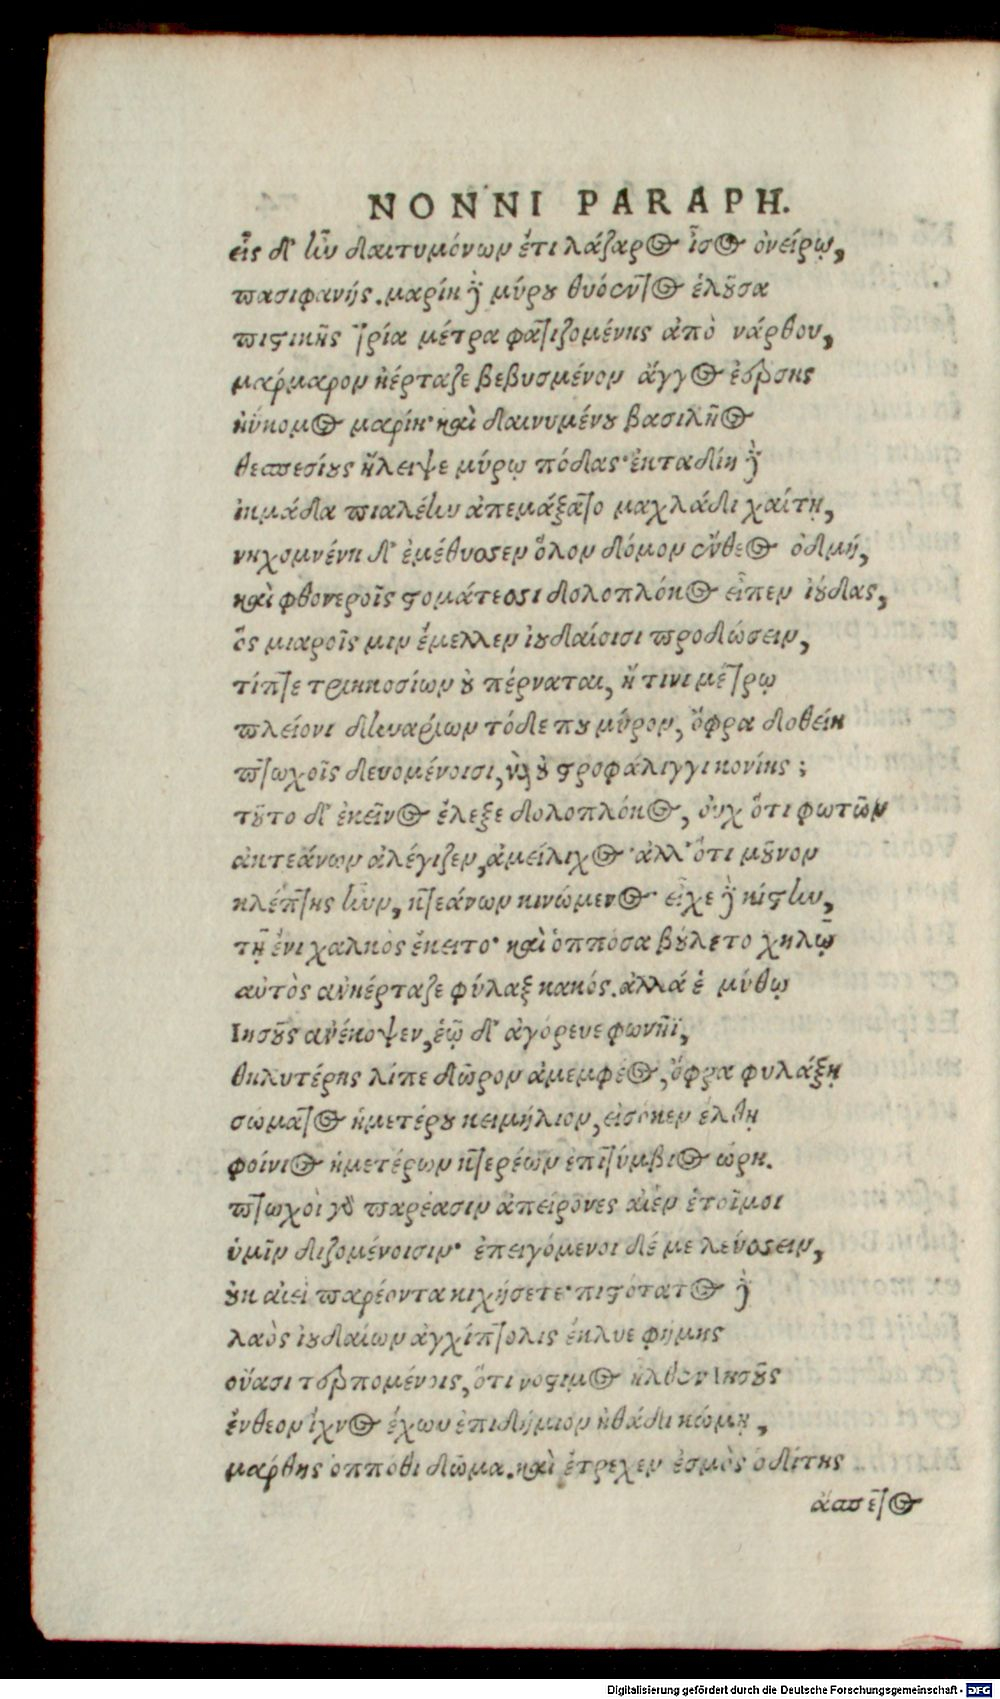 NONNI PARAPH.
εἷς δ' ἦν δαιτυμόνων ἔτι λάζαρος ἶσος ὀνείρῳ,
πασιφανής. μαρίη δὲ μύρου θυόεντος ἑλοῦσα
πιστικῆς τρία μέτρα φατιζομένης ἀπὸ νάρθου,
μάρμαρον ἠέρταζε βεβυσμένον ἄγγος ἐέρσης
ἠύκομος μαρίη· καὶ δαινυμένου βασιλῆος
θεσπεσίους ἤλειψε μύρῳ πόδας· ἐκταδίη δὲ
ἰκμάδα πιαλέην ἀπεμάξατο μαχλάδι χαίτῃ,
νηχομνένη δ' ἐμέθυσσεν ὅλον δόμον εὔθεος ὀδμή,
καὶ φθονεροῖς στομάτεσσι δολοπλόκος εἶπεν ἰούδας,
ὃς μιαροῖς μιν ἔμελλεν ἰουδαίοισι προδώσειν,
τίπτε τριηκοσίων οὐ πέρναται, ἤ τινι μέτρῳ
πλείονι δηναρίων τόδε που μύρον, ὄφρα δοθείη
πτωχοῖς δευομένοισι, καὶ οὐ στροφάλιγγι κονίης;
τοῦτο δ' ἐκεῖνος ἔλεξε δολοπλόκος, οὐχ ὅτι φωτῶν
ἀκτεάνων ἀλέγιζεν, ἀμείλιχος· ἀλλ' ὅτι μοῦνον
κλέπτης ἦν, κτεάνων κινώμενος· εἶχε δὲ κίστην,
τῇ ἔνι χαλκὸς ἔκειτο· καὶ ὁππόσα βούλετο χηλῷ
αὐτὸς ἀνέρταζε φύλαξ κακός. ἀλλά ἑ μύθῳ
Ἰησοῦς ἀνέκοψεν, ἑῷ δ' ἀγόρευε φωνῆϊ,
θηλυτέρης λίπε δῶρον ἀμεμφέος, ὄφρα φυλάξῃ
σώματος ἡμετέρου κειμήλιον, εἰσόκεν ἔλθῃ
φοίνιος ἡμετέρων κτερέων ἐπιτύμβιος ὥρη.
πτωχοὶ γὸ παρέασιν ἀπείρονες αἰὲν ἑτοῖμοι
ὑμῖν διζομένοισιν· ἐπειγόμενοι δέ με λεύσσειν,
οὐκ αἰεὶ παρέοντα κιχήσετε· πιστότατος δὲ
λαὸς ἰουδαίων ἀγχίπτολις ἔκλυε φήμης
οὔασι τερπομένοις, ὅτι νόστιμος ἤλθεν Ἰησοῦς
ἔνθεον ἴχνος ἔχων ἐπιδήμιον ἠθάδι κώμῃ,
μάρθης ὁππόθι δῶμα. καὶ ἔτρεχεν ἑσμὸς ὁδίτης
ἄσπετος
Digitalisierung gefördert durch die Deutsche Forschungsgemeinschaft - DFG